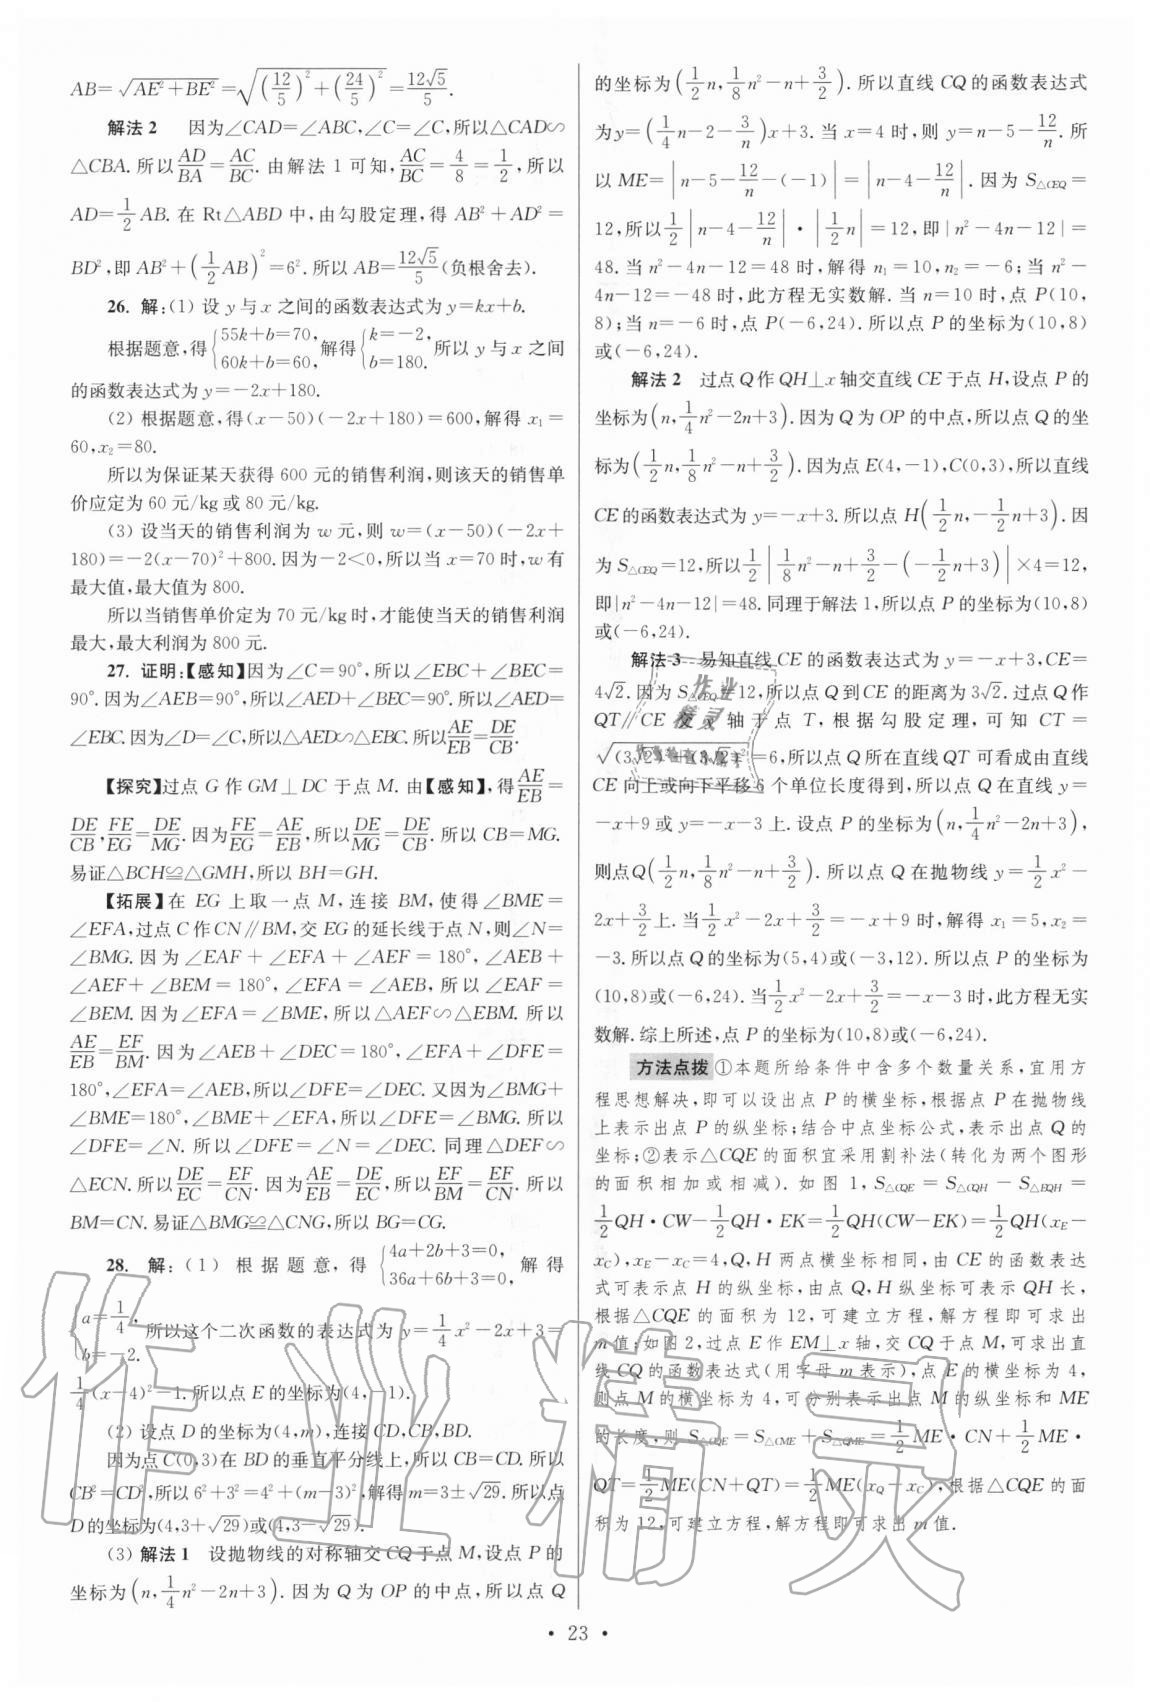 AB=√(AE²+BE²)=√((12/5)²+(24/5)²)=12√5/5.
解法 2 因为∠CAD=∠ABC,∠C=∠C,所以△CAD∽
△CBA. 所以AD/BA=AC/BC. 由解法 1 可知,AC/BC=4/8=1/2,所以
AD=1/2AB. 在 Rt△ABD 中,由勾股定理,得 AB²+AD²=
BD²,即 AB²+(1/2AB)²=6². 所以 AB=12√5/5(负根舍去).
26. 解:(1) 设 y 与 x 之间的函数表达式为 y=kx+b.
根据题意,得{55k+b=70, 60k+b=60, 解得{k=-2, b=180. 所以 y 与 x 之间
的函数表达式为 y=-2x+180.
(2) 根据题意,得(x-50)(-2x+180)=600,解得 x₁=
60,x₂=80.
所以为保证某天获得 600 元的销售利润,则该天的销售单
价应定为 60 元/kg 或 80 元/kg.
(3) 设当天的销售利润为 w 元,则 w=(x-50)(-2x+
180)=-2(x-70)²+800. 因为-2<0,所以当 x=70 时,w 有
最大值,最大值为 800.
所以当销售单价定为 70 元/kg 时,才能使当天的销售利润
最大,最大利润为 800 元.
27. 证明:【感知】因为∠C=90°,所以∠EBC+∠BEC=
90°. 因为∠AEB=90°,所以∠AED+∠BEC=90°. 所以∠AED=
∠EBC. 因为∠D=∠C,所以△AED∽△EBC. 所以AE/EB=DE/CB.
【探究】过点 G 作 GM⊥DC 于点 M. 由【感知】,得AE/EB=
DE/CB,FE/EG=DE/MG. 因为FE/EG=AE/EB,所以DE/MG=DE/CB. 所以 CB=MG.
易证△BCH≌△GMH,所以 BH=GH.
【拓展】在 EG 上取一点 M,连接 BM,使得∠BME=
∠EFA,过点 C 作 CN∥BM,交 EG 的延长线于点 N,则∠N=
∠BMG. 因为∠EAF+∠EFA+∠AEF=180°,∠AEB+
∠AEF+∠BEM=180°,∠EFA=∠AEB,所以∠EAF=
∠BEM. 因为∠EFA=∠BME,所以△AEF∽△EBM. 所以
AE/EB=EF/BM. 因为∠AEB+∠DEC=180°,∠EFA+∠DFE=
180°,∠EFA=∠AEB,所以∠DFE=∠DEC. 又因为∠BMG+
∠BME=180°,∠BME+∠EFA,所以∠DFE=∠BMG. 所以
∠DFE=∠N. 所以∠DFE=∠N=∠DEC. 同理△DEF∽
△ECN. 所以DE/EC=EF/CN. 因为AE/EB=DE/EC,所以EF/BM=EF/CN. 所以
BM=CN. 易证△BMG≌△CNG,所以 BG=CG.
28. 解:(1) 根据题意,得{4a+2b+3=0, 36a+6b+3=0, 解得
{a=1/4, b=-2. 所以这个二次函数的表达式为 y=1/4x²-2x+3=
1/4(x-4)²-1. 所以点 E 的坐标为(4,-1).
(2) 设点 D 的坐标为(4,m),连接 CD,CB,BD.
因为点 C(0,3)在 BD 的垂直平分线上,所以 CB=CD. 所以
CB²=CD²,所以 6²+3²=4²+(m-3)²,解得 m=3±√29. 所以点
D 的坐标为(4,3+√29)或(4,3-√29).
(3) 解法 1 设抛物线的对称轴交 CQ 于点 M,设点 P 的
坐标为(n,1/4n²-2n+3). 因为 Q 为 OP 的中点,所以点 Q
的坐标为(1/2n,1/8n²-n+3/2). 所以直线 CQ 的函数表达式
为 y=(1/4n-2-3/n)x+3. 当 x=4 时,则 y=n-5-12/n. 所
以 ME=|n-5-12/n-(-1)|=|n-4-12/n|. 因为 S△CEQ=
12,所以1/2|n-4-12/n|·|1/2n|=12,即|n²-4n-12|=
48. 当 n²-4n-12=48 时,解得 n₁=10,n₂=-6;当 n²-
4n-12=-48 时,此方程无实数解. 当 n=10 时,点 P(10,
8);当 n=-6 时,点 P(-6,24). 所以点 P 的坐标为(10,8)
或(-6,24).
解法 2 过点 Q 作 QH⊥x 轴交直线 CE 于点 H,设点 P 的
坐标为(n,1/4n²-2n+3). 因为 Q 为 OP 的中点,所以点 Q 的坐
标为(1/2n,1/8n²-n+3/2). 因为点 E(4,-1),C(0,3),所以直线
CE 的函数表达式为 y=-x+3. 所以点 H(1/2n,-1/2n+3). 因
为 S△CEQ=12,所以1/2|1/8n²-n+3/2-(-1/2n+3)|×4=12,
即|n²-4n-12|=48. 同理于解法 1,所以点 P 的坐标为(10,8)
或(-6,24).
解法 3 易知直线 CE 的函数表达式为 y=-x+3,CE=
4√2. 因为 S△CEQ=12,所以点 Q 到 CE 的距离为 3√2. 过点 Q 作
QT∥CE 交 y 轴于点 T,根据勾股定理,可知 CT=
√((3√2)²+(3√2)²)=6,所以点 Q 所在直线 QT 可看成由直线
CE 向上或向下平移 6 个单位长度得到,所以点 Q 在直线 y=
-x+9 或 y=-x-3 上. 设点 P 的坐标为(n,1/4n²-2n+3),
则点Q(1/2n,1/8n²-n+3/2). 所以点 Q 在抛物线 y=1/2x²-
2x+3/2上. 当1/2x²-2x+3/2=-x+9 时,解得 x₁=5,x₂=
-3. 所以点 Q 的坐标为(5,4)或(-3,12). 所以点 P 的坐标为
(10,8)或(-6,24). 当1/2x²-2x+3/2=-x-3 时,此方程无实
数解. 综上所述,点 P 的坐标为(10,8)或(-6,24).
方法点拨 ①本题所给条件中含多个数量关系,宜用方
程思想解决,即可以设出点 P 的横坐标,根据点 P 在抛物线
上表示出点 P 的纵坐标;结合中点坐标公式,表示出点 Q 的
坐标;②表示△CQE 的面积宜采用割补法(转化为两个图形
的面积相加或相减). 如图 1,S△CQE=S△CQH-S△EQH=
1/2QH·CW-1/2QH·EK=1/2QH(CW-EK)=1/2QH(xE-
xC),xE-xC=4,Q,H 两点横坐标相同,由 CE 的函数表达
式可表示点 H 的纵坐标,由点 Q,H 纵坐标可表示 QH 长,
根据△CQE 的面积为 12,可建立方程,解方程即可求出
m 值;如图 2,过点 E 作 EM⊥x 轴,交 CQ 于点 M,可求出直
线 CQ 的函数表达式(用字母 m 表示),点 E 的横坐标为 4,
则点 M 的横坐标为 4,可分别表示出点 M 的纵坐标和 ME
的长度,则 S△CQE=S△CME+S△QME=1/2ME·CN+1/2ME·
QT=1/2ME(CN+QT)=1/2ME(xQ-xC),根据△CQE 的面
积为 12,可建立方程,解方程即可求出 m 值.
· 23 ·
作业精灵
作业
精灵